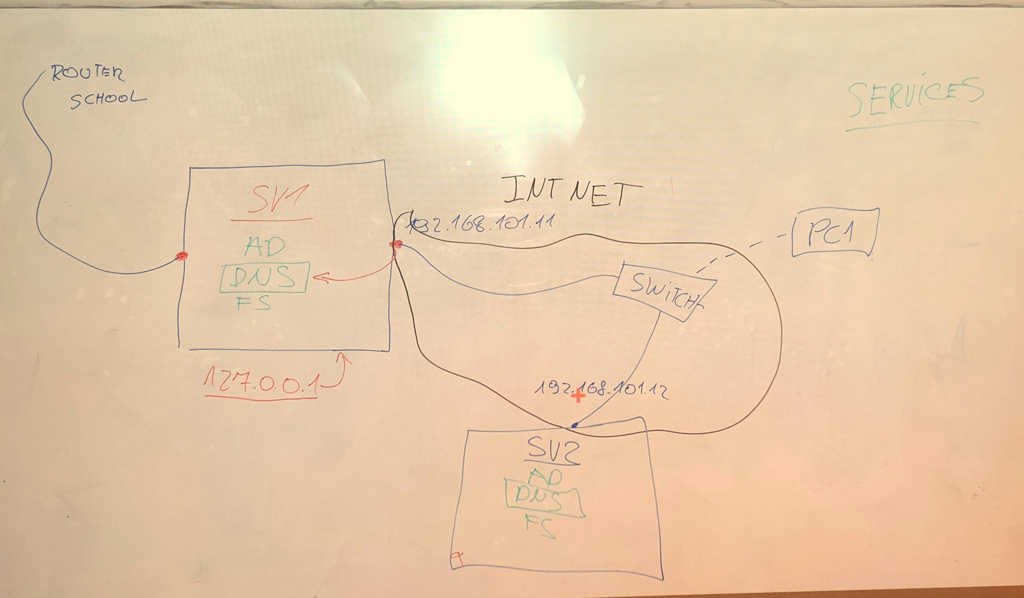 ROUTER
SCHOOL
SERVICES
SV1
AD
DNS
FS
127.0.0.1
INT NET
192.168.101.11
SWITCH
PC1
192.168.101.12
SV2
AD
DNS
FS